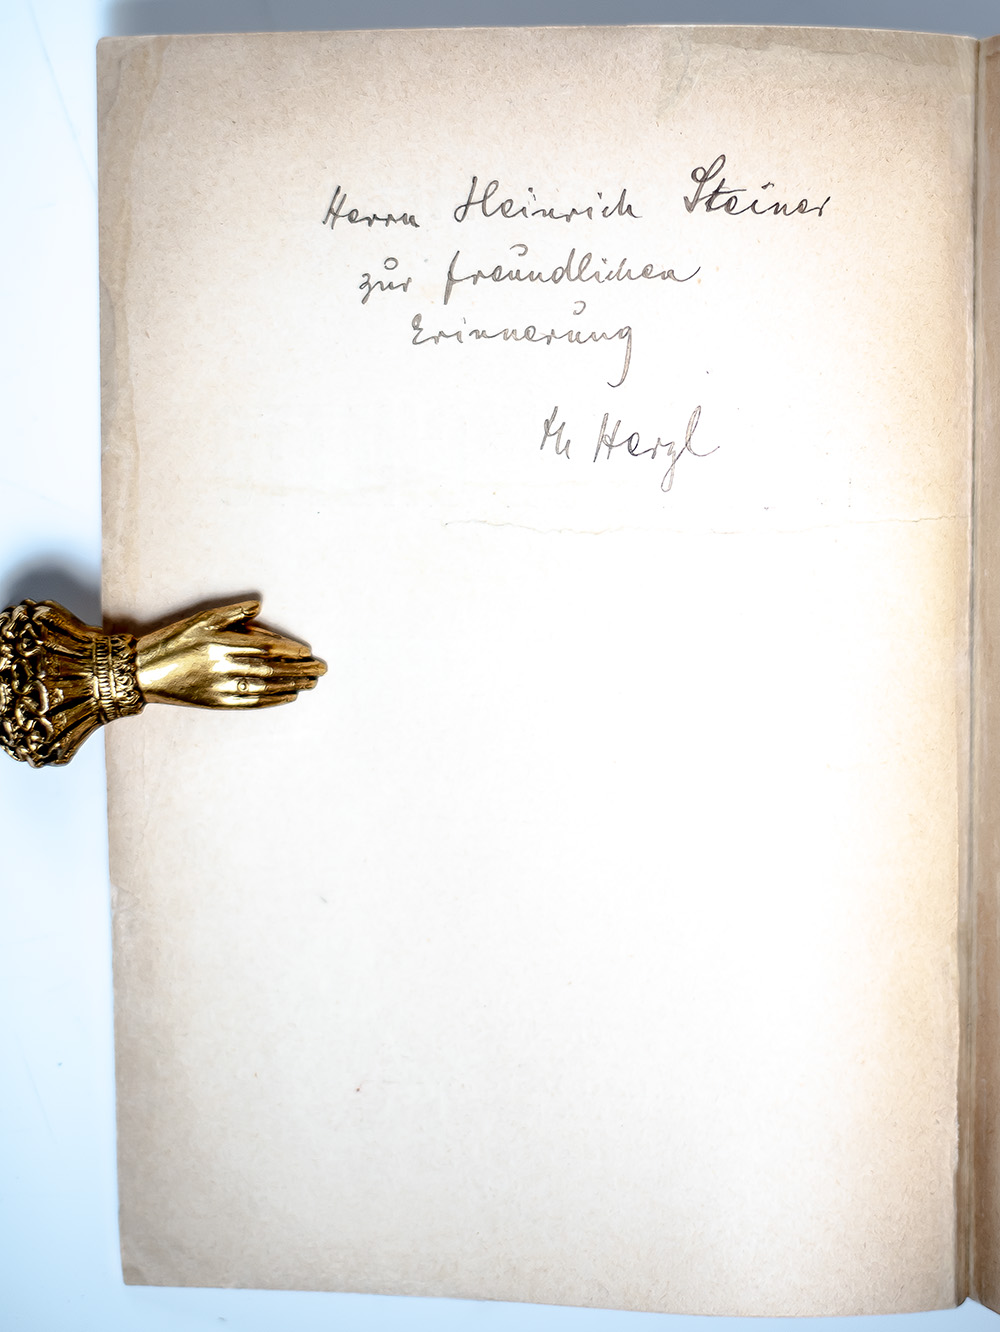 Herrn Heinrich Steiner
zur freundlichen
Erinnerung
Th Herzl